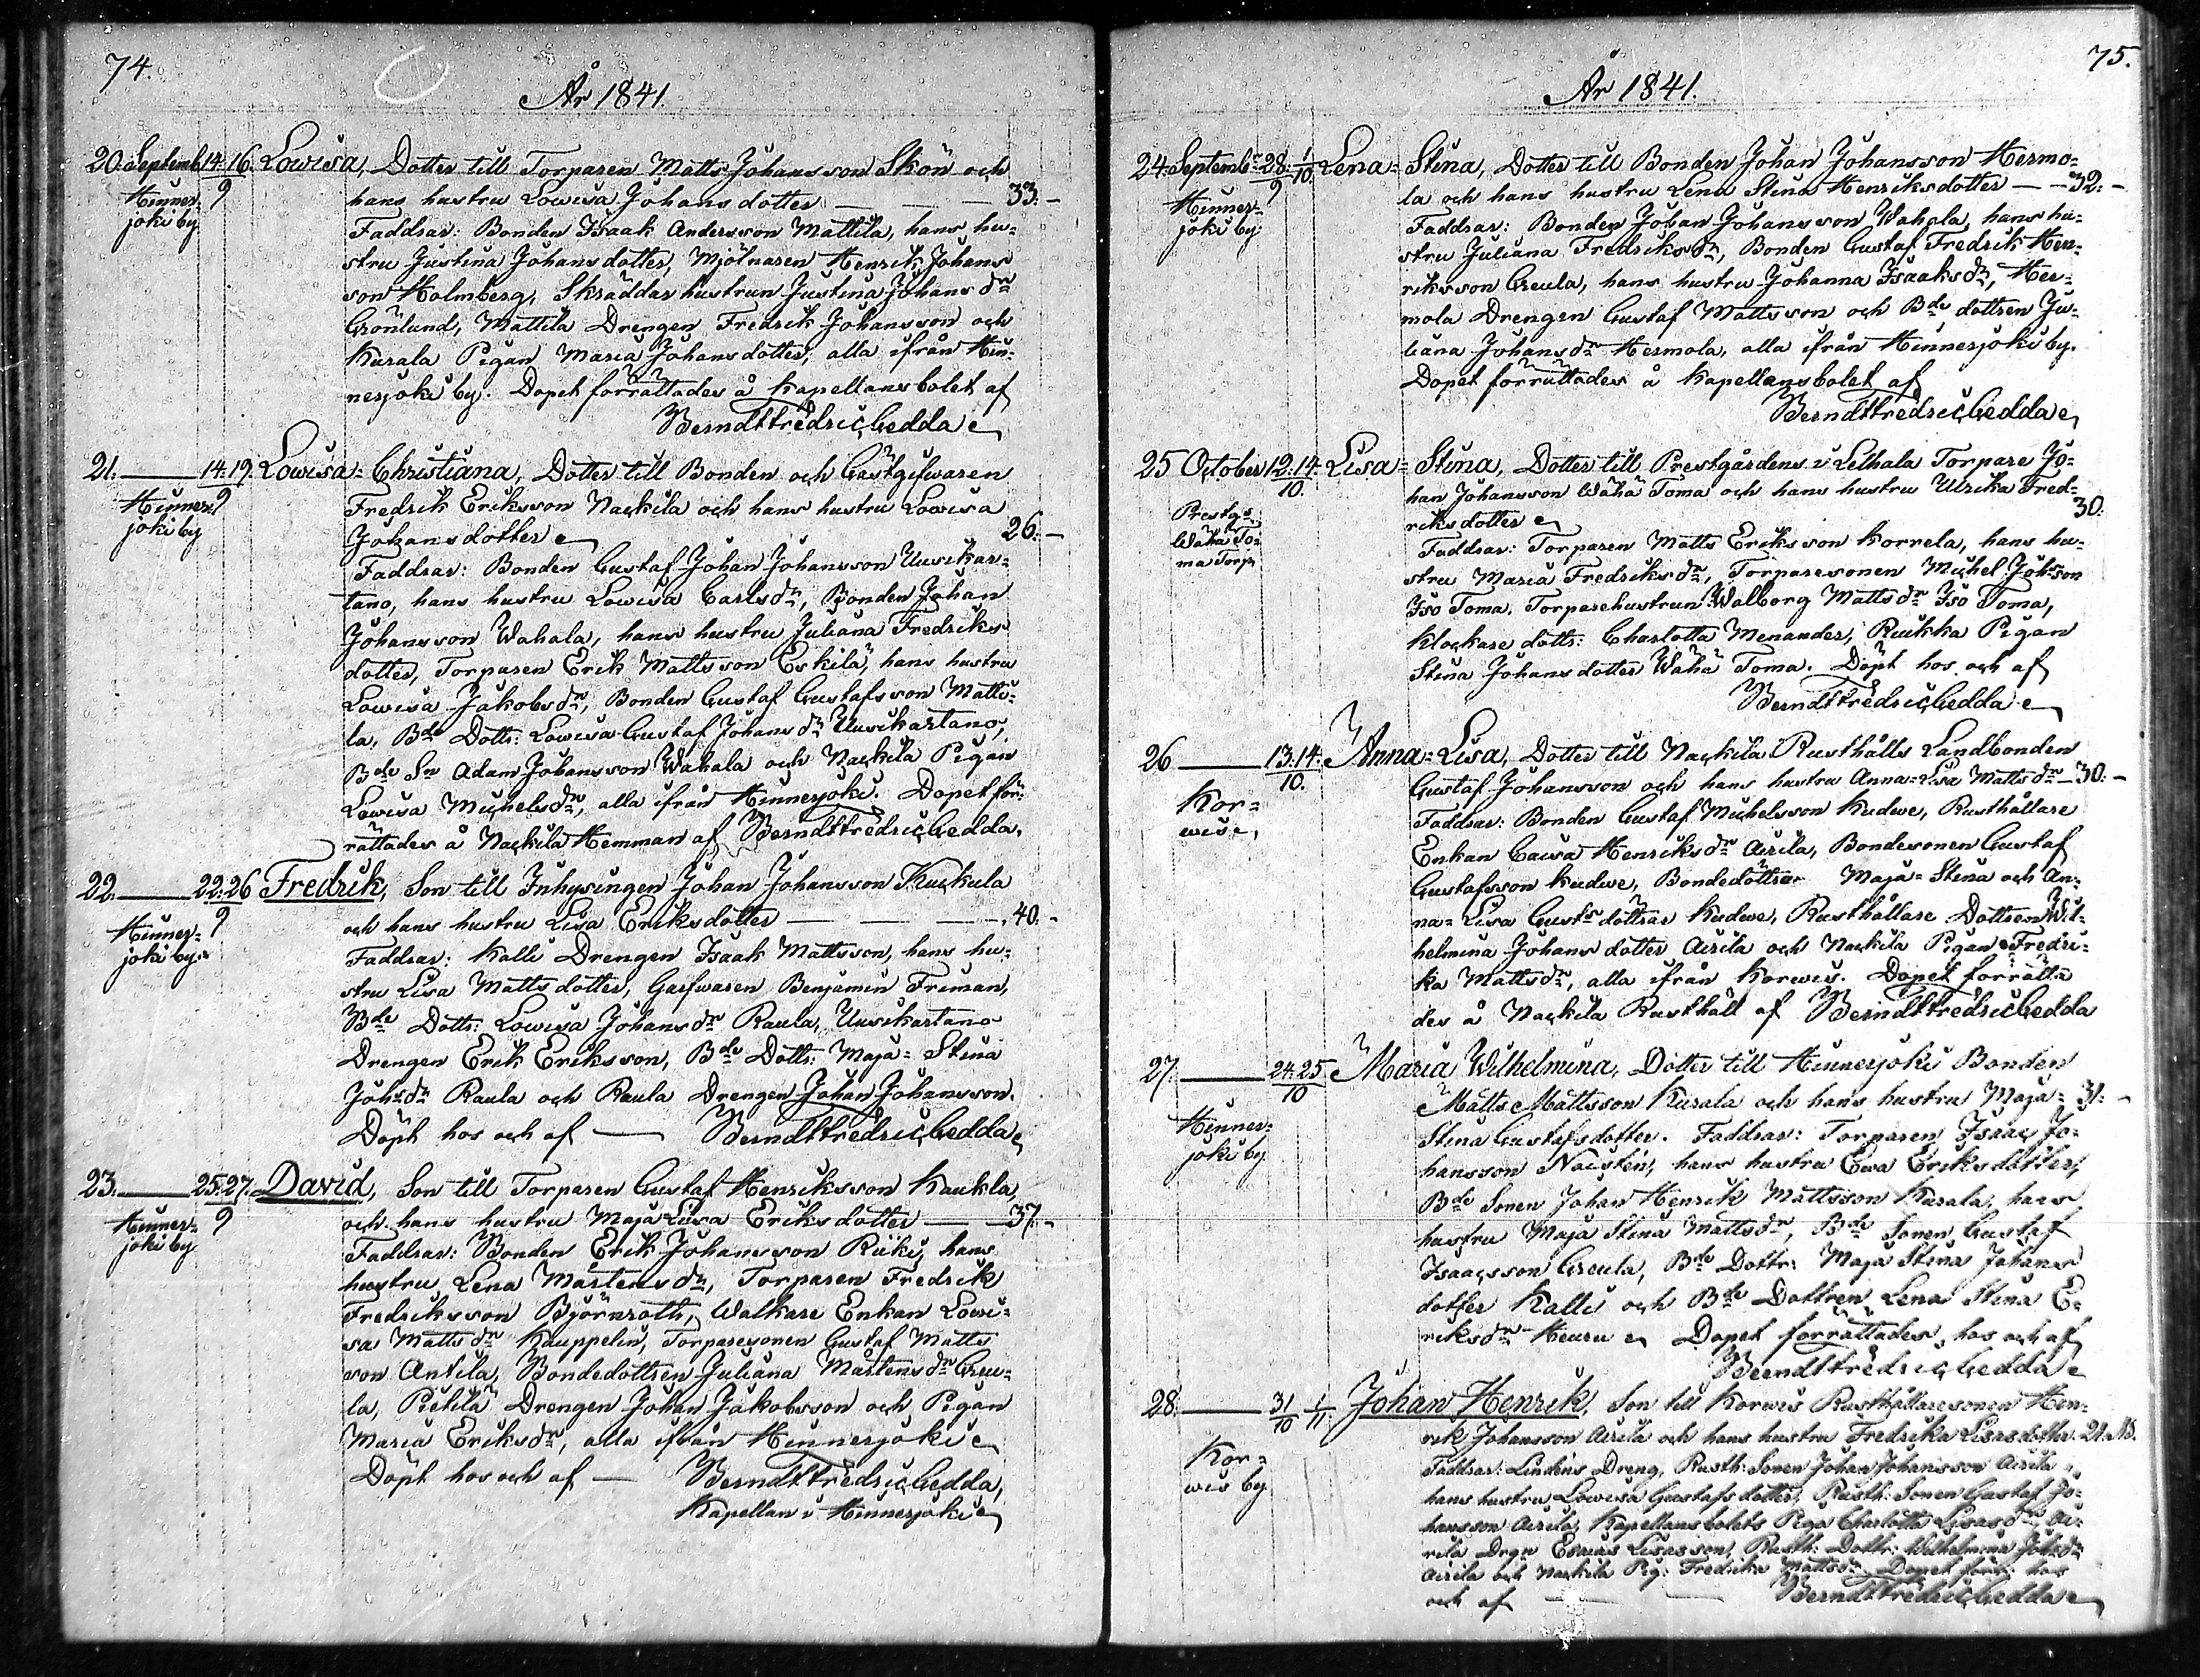 74.
År 1841.
20. Septemb. 14. 16. Lowisa, Dotter till Torparen Matts Johansson Skön och
9
Hinner-
joki by
hans hustru Lowisa Johansdotter — — — 33. -
Faddrar: Bonden Isaak Andersson Mattila, hans hu-
stru Justina Johansdotter, Mjölnaren Henrik Johans
son Holmberg, Skräddar hustrun Justina Johans dr
Grönlund, Mattila Drengen Fredrik Johansson och
Kurala Pigan Maria Johansdotter, alla ifrån Hin-
nerjoki by. Dopet förrättades å Kapellansbolet af
Berndt Fredric Gedda
21. — 14. 19. Lowisa-Christiana, Dotter till Bonden och Gästgifwaren
9
Hinner-
joki by
Fredrik Eriksson Nackila och hans hustru Lowisa
Johansdotter 26. -
Faddrar: Bonden Gustaf Johan Johansson Uusikar-
tano, hans hustru Lowisa Carlsdr, Bonden Johan
Johansson Wahala, hans hustru Juliana Fredriks
dotter, Torparen Erik Mattsson Eskilä, hans hustru
Lowisa Jakobsdr, Bonden Gustaf Gustafsson Matti-
la, Bde Dottr: Lowisa Gustaf Johans dr Uusikartano,
Bde Sn Adam Johansson Wahala och Nackila Pigan
Lowisa Michelsdr, alla ifrån Hinnerjoki. Dopet för-
rättades å Nackila Hemman af Berndt Fredric Gedda.
22. — 22. 26 Fredrik, Son till Inhysingen Johan Johansson Kuckula
9
Hinner-
joki by.
och hans hustru Lisa Eriksdotter — — — 40. -
Faddrar: Kalli Drengen Isaak Mattsson, hans hu-
stru Lisa Mattsdotter, Garfwaren Benjamin Friman,
Bde Dottr: Lowisa Johansdr Raula, Uusikartano
Drengen Erik Eriksson, Bde Dottr: Maja-Stina
Johsdr Raula och Raula Drengen Johan Johansson.
Döpt hos och af — Berndt Fredric Gedda
23. — 25. 27. David, Son till Torparen Gustaf Henriksson Kaukla,
9
Hinner-
joki by
och hans hustru Maja Lisa Eriksdotter — 37. -
Faddrar: Bonden Erik Johansson Riiki, hans
hustru Lena Mårtensdr, Torparen Fredrik
Fredriksson Björnroth, Walkare Enkan Lowi-
sa Mattsdr Kauppelin, Torparesonen Gustaf Matts
son Antila, Bondedottren Juliana Mårtensdr Greu-
la, Pietilä Drengen Johan Jakobsson och Pigan
Maria Eriksdr, alla ifrån Hinnerjoki
Döpt hos och af — Berndt Fredric Gedda,
Kapellan i Hinnerjoki
75.
År 1841.
24. Septembr 28. 1 Lena-Stina, Dotter till Bonden Johan Johansson Hermo-
9 10
Hinner-
joki by
la och hans hustru Lena Stina Henriksdotter — 32. -
Faddrar: Bonden Johan Johansson Wahala, hans hu-
stru Juliana Fredriksdr, Bonden Gustaf Fredrik Hen-
riksson Greula, hans hustru Johanna Isaaksdr, Her-
mola Drengen Gustaf Mattsson och Bde dottren Ju-
liana Johansdr Hermola, alla ifrån Hinnerjoki by.
Dopet förrättades å Kapellansbolet af
Berndt Fredric Gedda
25 October 12. 14. Lisa-Stina, Dotter till Prestgårdens i Lethala Torpare Jo-
10.
Prestgs
Wähä To-
ma Torp
han Johansson Wähä Toma och hans hustru Ulrika Fred-
riksdotter 30.
Faddrar: Torparen Matts Eriksson Korrela, hans hu-
stru Maria Fredriksdr, Torparesonen Michel Johsson
Iso Toma, Torparehustrun Walborg Mattsdr Iso Toma,
Klockare dottr: Charlotta Menander, Ruikka Pigan
Stina Johansdotter Wähä Toma. Döpt hos och af
Berndt Fredric Gedda
26 — 13. 14. Anna-Lisa, Dotter till Nackila Rusthålls Landbonden
10.
Kor-
wis
Gustaf Johansson och hans hustru Anna-Lisa Mattsdr — 30. -
Faddrar: Bonden Gustaf Michelsson Kudwe, Rusthållare
Enkan Caisa Henriksdr Airila, Bondesonen Gustaf
Gustafsson Kudwe, Bondedöttrar Maja-Stina och An-
na-Lisa Gustfs döttrar Kudwe, Rusthållare Dottren Wil-
helmina Johansdotter Airila och Nackila Pigan Fredri-
ka Mattsdr, alla ifrån Korwis. Dopet förrätta
des å Nackila Rusthåll af Berndt Fredric Gedda
27. — 24. 25 Maria Wilhelmina, Dotter till Hinnerjoki Bonden
10
Hinner-
joki by
Matts Mattsson Kurala och hans hustru Maja- 31. -
Stina Gustafsdotter. Faddrar: Torparen Isaac Jo-
hansson Naistén, hans hustru Ewa Eriksdotter,
Bde Sonen Johan Henrik Mattsson Kurala, hans
hustru Maja Stina Mattsdr, Bde Sonen Gustaf
Isaacsson Greula, Bde Dottr: Maja Stina Johans
dotter Kalli och Bde Dottren Lena Stina E-
riksdr Heuru. Dopet förrättades hos och af
Berndt Fredric Gedda
28. — 31 1 Johan Henrik, Son till Korwis Rusthållaresonen Hen-
10 11
Kor-
wis by
rik Johansson Airila och hans hustru Fredrika Lisasdotter. 21.
Faddrar: Lindens Dreng, Rusth: Sonen Johan Johansson Airila,
hans hustru Lowisa Gustafsdotter, Rusth: Sonen Gustaf Jo-
hansson Airila, Kapellansbolets Piga Charlotta Lisasdr, Ai-
rila Drgn Esaias Lisasson, Rusth: Dottr: Wilhelmina Johsdr
Airila och Nackila Pig: Fredrika Mattsdr. Dopet förr: hos
och af — — Berndt Fredric Gedda